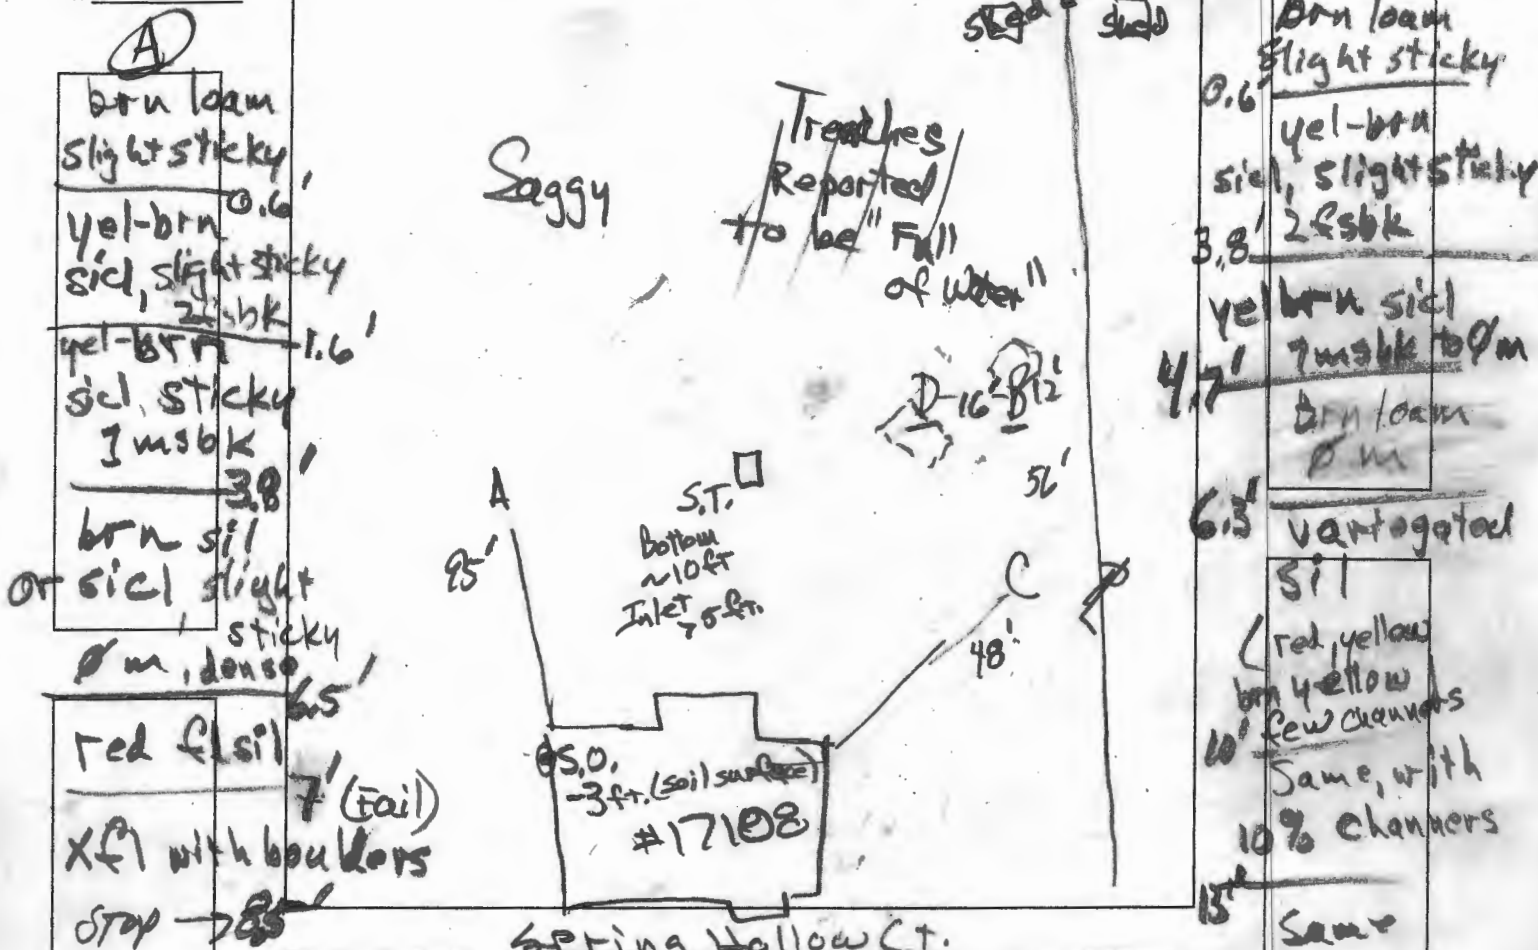 A
brn loam
slight sticky
0.6'
yel-brn
sicl, slight sticky
2fsbk
1.6'
yel-brn
sicl, sticky
1msbk
3.8'
brn sil
or sicl, slight
sticky
Ø m, dense
6.5'
red flsil
7' (Fail)
xfl with boulders
STOP → 8.5'
shed
shed
Saggy
Trenches
Reported
to be "Full
of Water"
D-16'-B 12'
56'
A
95'
S.T.
Bottom
~10ft
Inlet
>5ft.
C
48'
S.O.
-3ft. (soil surface)
#17108
Spring Hollow Ct.
brn loam
slight sticky
0.6'
yel-brn
sicl, slight sticky
2fsbk
3.8'
yel brn sicl
1msbk to Ø m
4.7'
brn loam
Ø m
6.3'
variegated
sil
(red, yellow
brn yellow
few channers
10'
Same, with
10% channers
15'
Same